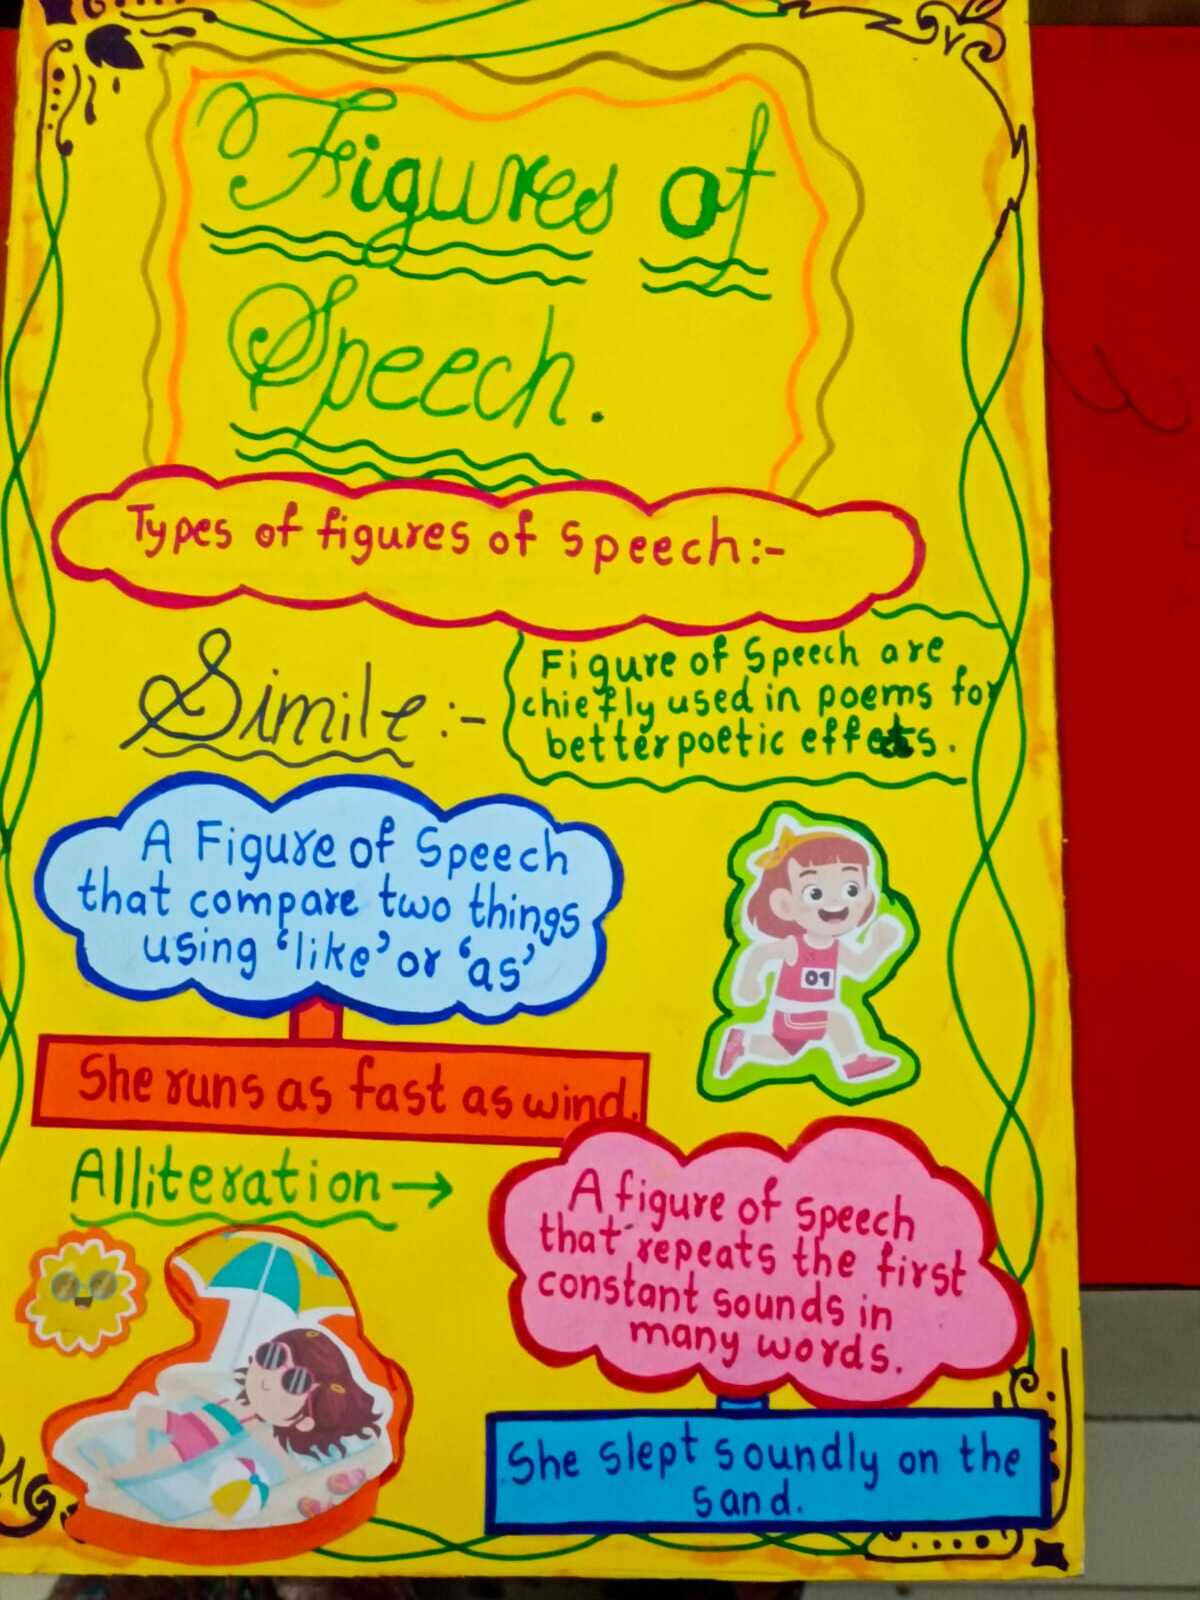 Figures of
Speech.
Types of figures of Speech:-
Simile:-
Figure of Speech are
chiefly used in poems for
better poetic effects.
A Figure of Speech
that compare two things
using 'like' or 'as'
01
She runs as fast as wind.
Alliteration→
A figure of Speech
that repeats the first
constant sounds in
many words.
She slept soundly on the
sand.